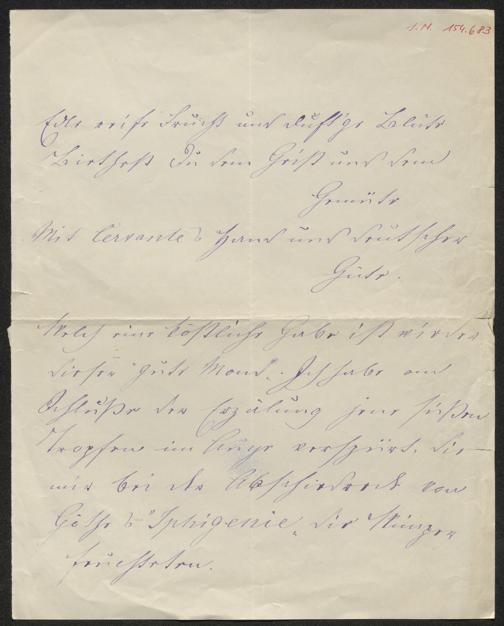 I.N. 154.683
Edle reife Frucht und duft'ge Blüte
Biethest Du dem Geist und dem
Gemüte
Mit Cervante's Hand und deutscher
Güte.
Welch eine köstliche Gabe ist wieder
dieser "gute Mond". Ich habe am
Schluße der Erzälung jene süßen
Tropfen im Auge verspürt, die
mir bei der Abschiedsrede von
Göthe's "Iphigenie" die Wimper
feuchteten.